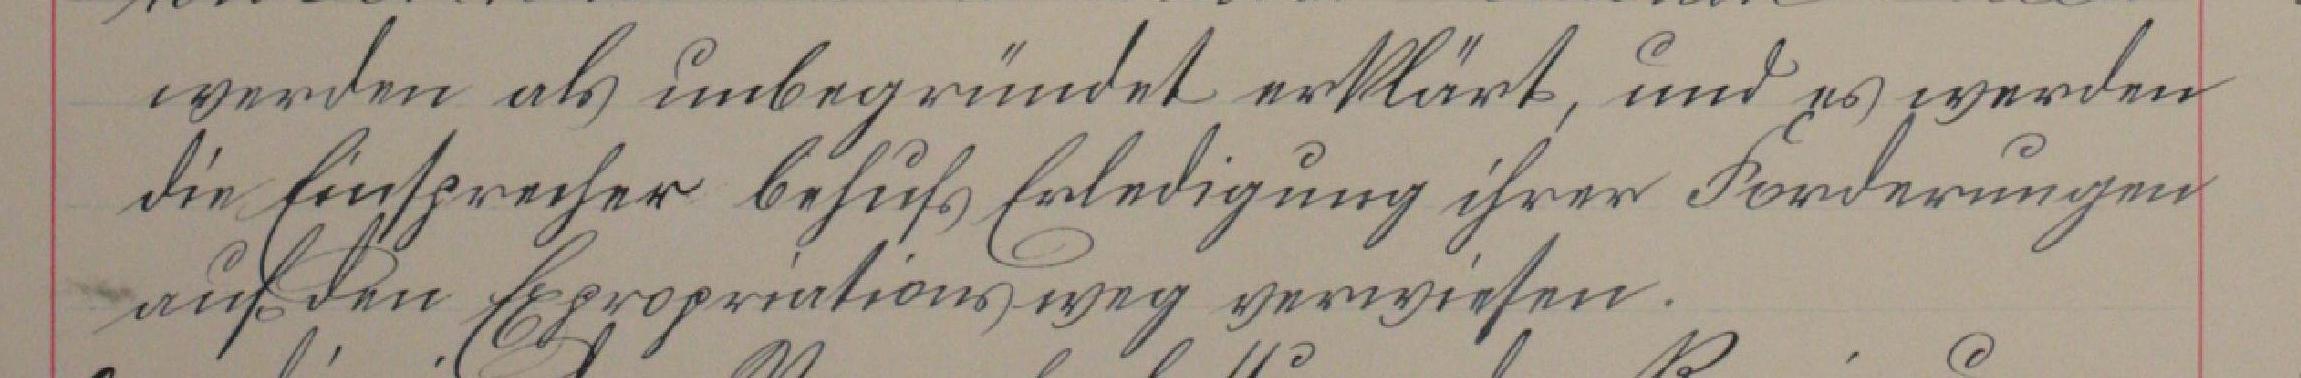 werden als unbegründet erklärt, und es werden
die Einsprecher behufs Erledigung ihrer Forderungen
auf den Expropriationsweg verwiesen.